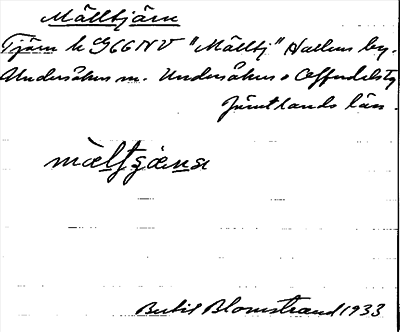 Mälltjärn
Tjärn k G66NV "Mälltj" Hallens by.
Undersåkers sn. Undersåkers o Offerdals tg
Jämtlands län.
màlt̯ʒæ̀ṇa
Bertil Blomstrand 1933